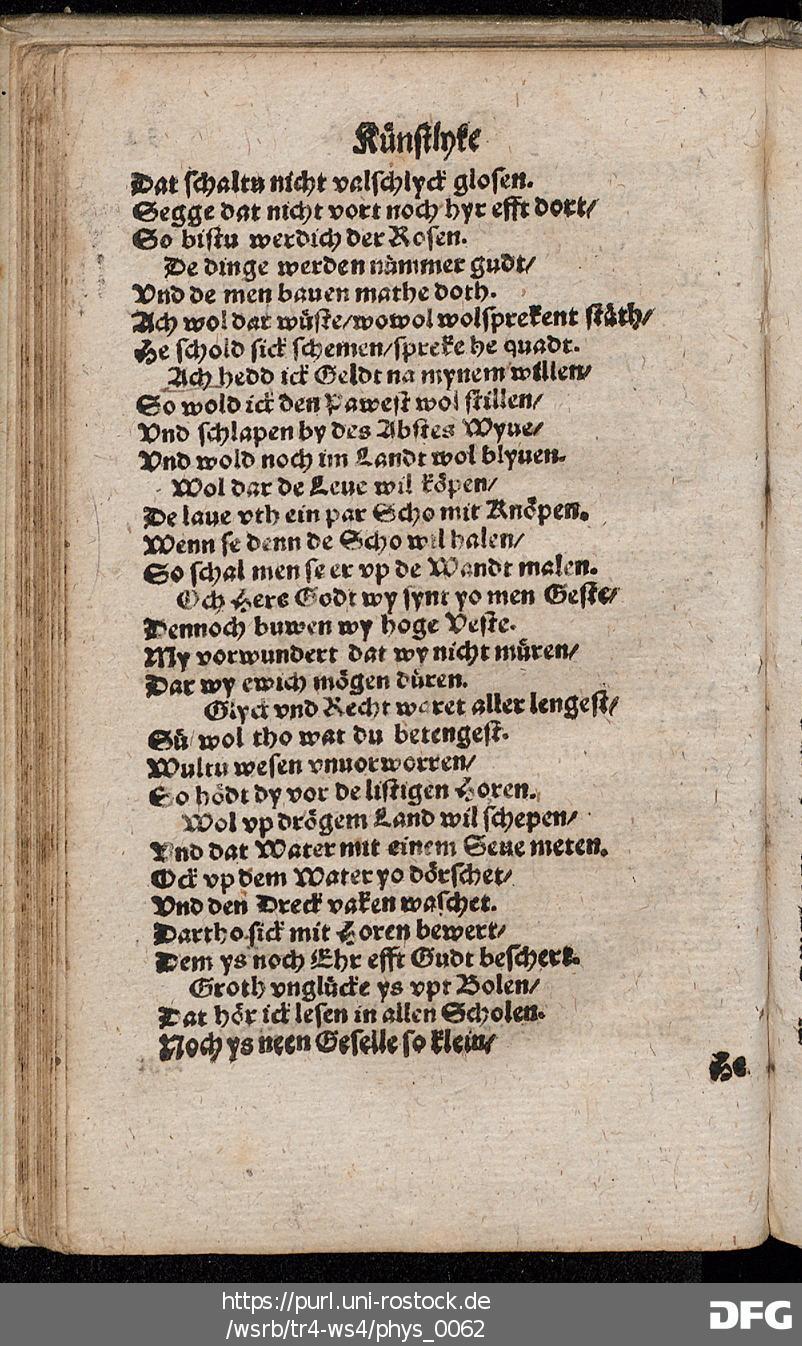 Künstlyke
Dat schaltu nicht valschlyck glosen.
Segge dat nicht vort noch hyr efft dort/
So bistu werdich der Rosen.
De dinge werden nümmer gudt/
Vnd de men bauen mathe doth.
Ach wol dar wüste/wowol wolsprekent stäth/
He schold sick schemen/spreke he quadt.
Ach hedd ick Geldt na mynem willen/
So wold ick den Pawest wol stillen/
Vnd schlapen by des Abstes Wyue/
Vnd wold noch im Landt wol blyuen.
Wol dar de Leue wil köpen/
De laue vth ein par Scho mit Knöpen.
Wenn se denn de Scho wil halen/
So schal men se er vp de Wandt malen.
Och Here Godt wy synt yo men Geste/
Dennoch buwen wy hoge Veste.
My vorwundert dat wy nicht müren/
Dar wy ewich mögen düren.
Glyck vnd Recht waret aller lengest/
Sü wol tho wat du betengest.
Wultu wesen vnuorworren/
So hödt dy vor de listigen Horen.
Wol vp drögem Land wil schepen/
Vnd dat Water mit einem Seue meten.
Ock vp dem Water yo dörschet/
Vnd den Dreck vaken waschet.
Dartho sick mit Horen bewert/
Dem ys noch Ehr efft Gudt beschert.
Groth vnglücke ys vpt Bolen/
Dat hör ick lesen in allen Scholen.
Noch ys neen Geselle so klein/
He
https://purl.uni-rostock.de
/wsrb/tr4-ws4/phys_0062
DFG